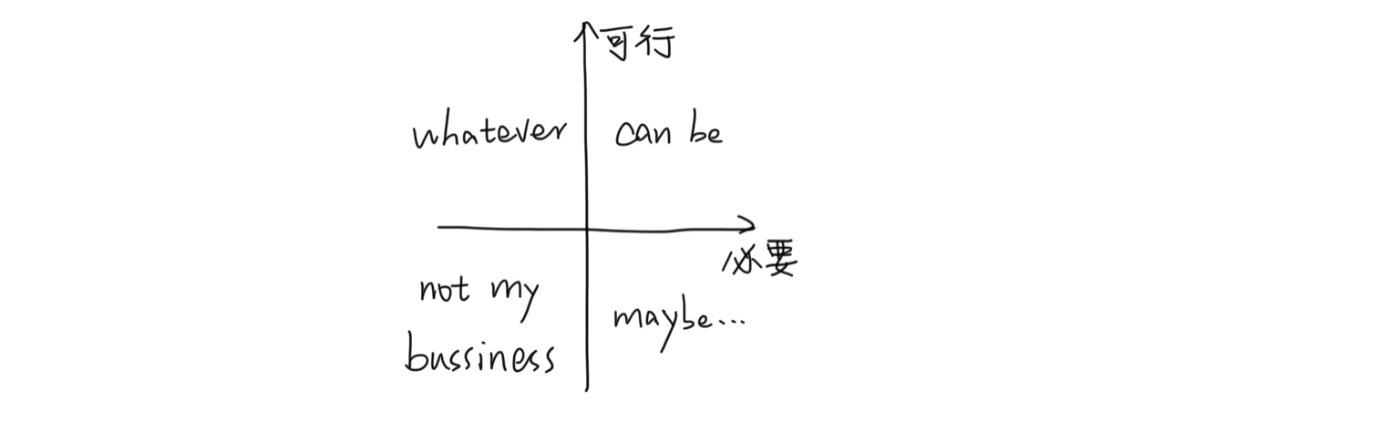 可行
whatever
can be
必要
not my
bussiness
maybe...